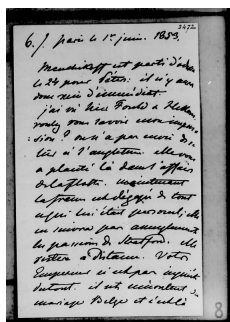 3472
6./ paris le 1er juin. 1853.
Menschikoff est parti d'
le 24 pour : il n'y aura
donc rien d'immédiat.
j'ai vu hier Fould &
voulez vous savoir mon impres-
sion ? on n'a pas envie de
à l'angleterre. elle vous
a planté là dans l'affaire
de la flotte. maintenant
la france est dégagée de tout
ce qui lui était personnel, elle
ne suivra pas aveuglement
les passions de Stratford. elle
restera à distance. Votre
Empereur n'est pas inquiet
du tout. il est mécontent du
mariage Belge et c'est là
8